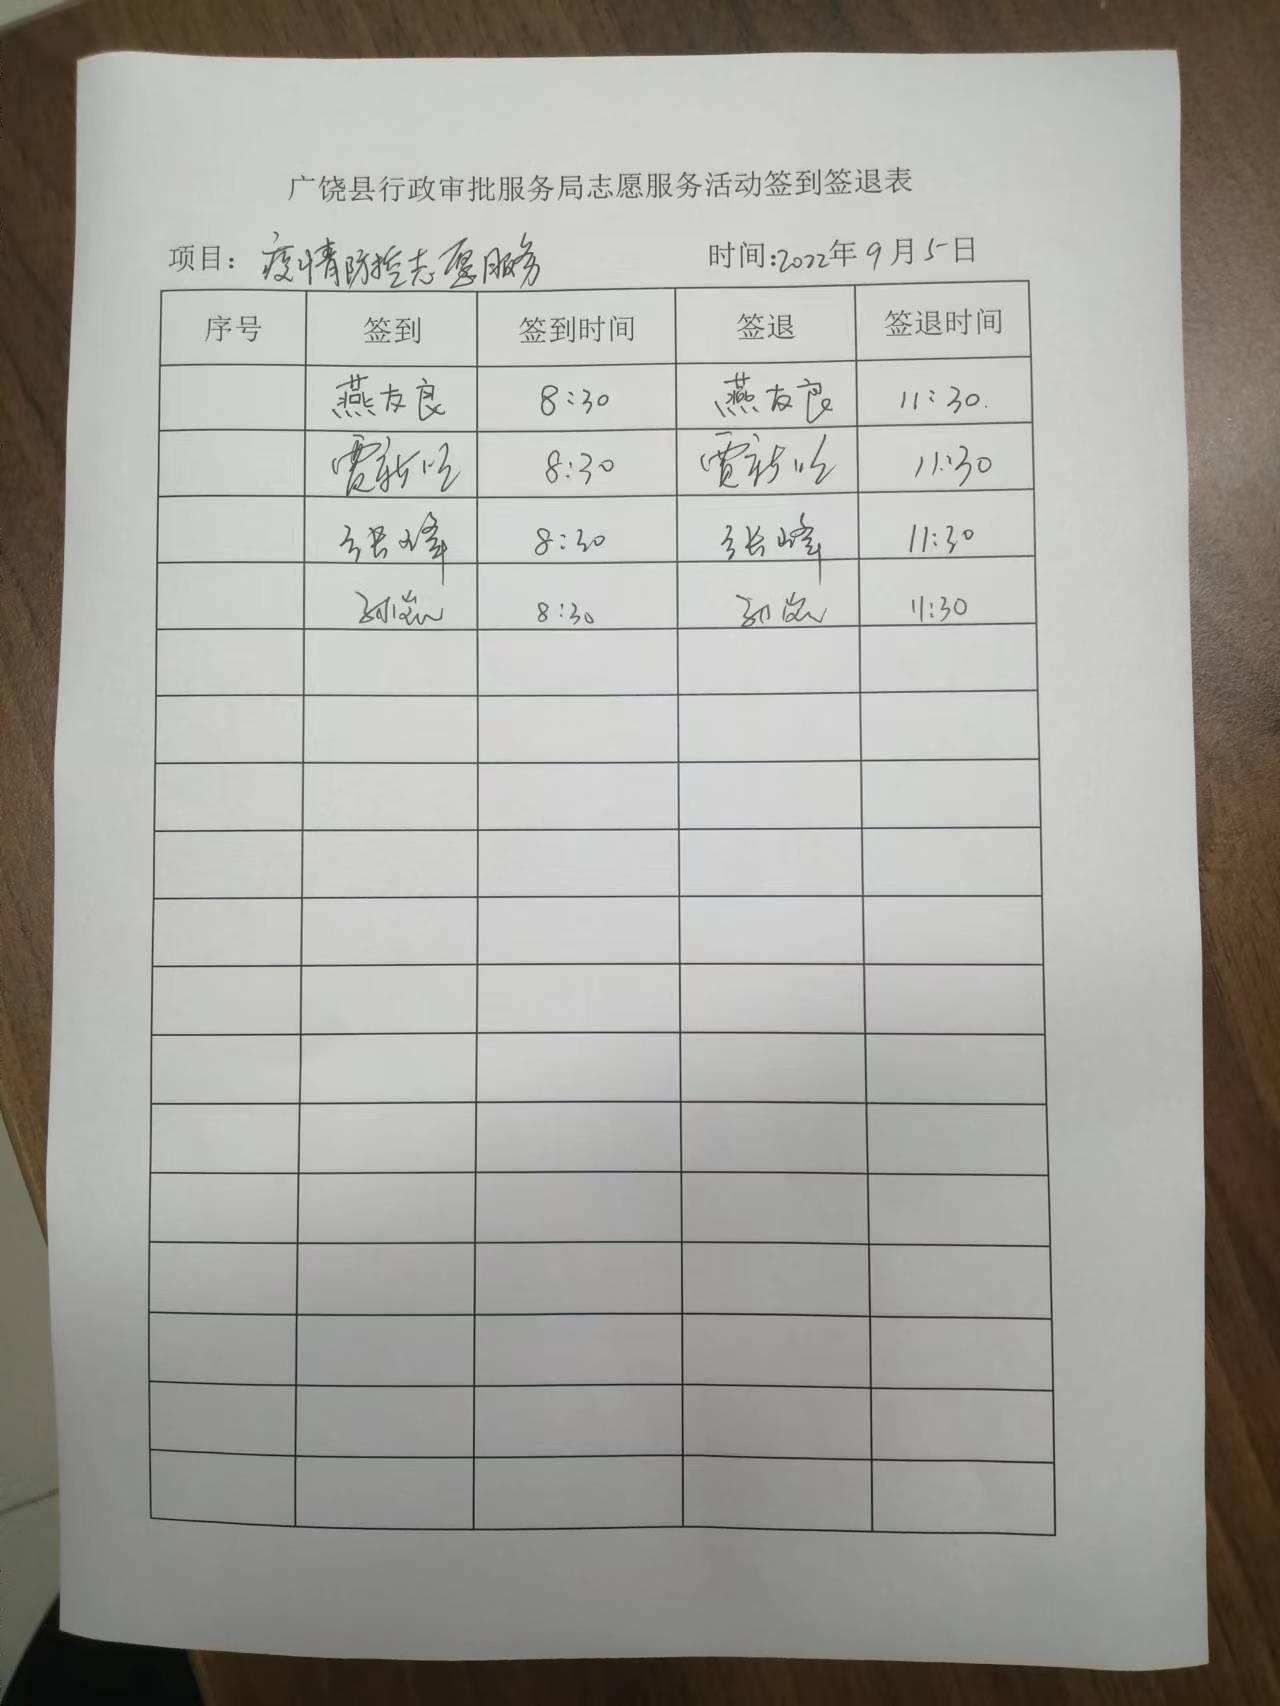 广饶县行政审批服务局志愿服务活动签到签退表
项目：疫情防控志愿服务 时间：2022年9月5日
序号 签到 签到时间 签退 签退时间
燕友良 8:30 燕友良 11:30.
贾新 8:30 贾新 11:30
张峰 8:30 张峰 11:30
孙岚 8:30 孙岚 11:30